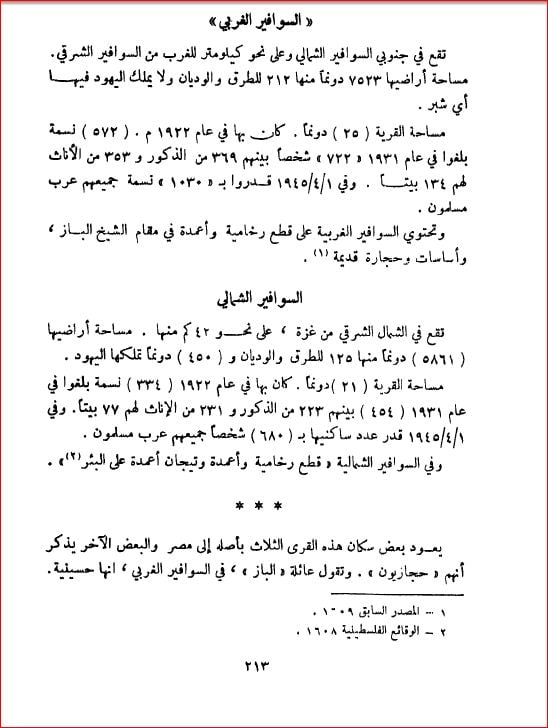 « السوافير الغربي »
تقع في جنوبي السوافير الشمالي وعلى نحو كيلومتر للغرب من السوافير الشرقي.
مساحة أراضيها ٧٥٢٣ دونماً منها ٢١٢ للطرق والوديان ولا يملك اليهود فيها
أي شبر .
مساحة القرية ( ٢٥ ) دونماً . كان بها في عام ١٩٢٢ م . ( ٥٧٢ ) نسمة
بلغوا في عام ١٩٣١ « ٧٢٢ » شخصاً بينهم ٣٦٩ من الذكور و ٣٥٣ من الأناث
لهم ١٣٤ بيتاً . وفي ١٩٤٥/٤/١ قدروا بـ « ١٠٣٠ » نسمة جميعهم عرب
مسلمون .
وتحتوي السوافير الغربية على قطع رخامية وأعمدة في مقام الشيخ الباز ،
وأساسات وحجارة قديمة (١) .
السوافير الشمالي
تقع في الشمال الشرقي من غزة ، على نحو ٤٢ كم منها . مساحة أراضيها
( ٥٨٦١ ) دونماً منها ١٢٥ للطرق والوديان و ( ٤٥٠ ) دونماً تملكها اليهود .
مساحة القرية ( ٢١ ) دونماً . كان بها في عام ١٩٢٢ ( ٣٣٤ ) نسمة بلغوا في
عام ١٩٣١ ( ٤٥٤ ) بينهم ٢٢٣ من الذكور و ٢٣١ من الإناث لهم ٧٧ بيتاً. وفي
١٩٤٥/٤/١ قدر عدد ساكنيها بـ ( ٦٨٠ ) شخصاً جميعهم عرب مسلمون .
وفي السوافير الشمالية « قطع رخامية وأعمدة وتيجان أعمدة على البئر(٢)» .
* * *
يعود بعض سكان هذه القرى الثلاث بأصله إلى مصر والبعض الآخر يذكر
أنهم « حجازيون » . وتقول عائلة « الباز » ، في السوافير الغربي ، انها حسينية.
١ – المصدر السابق ١٦٠٩ .
٢ – الوقائع الفلسطينية ١٦٠٨ .
٢١٣